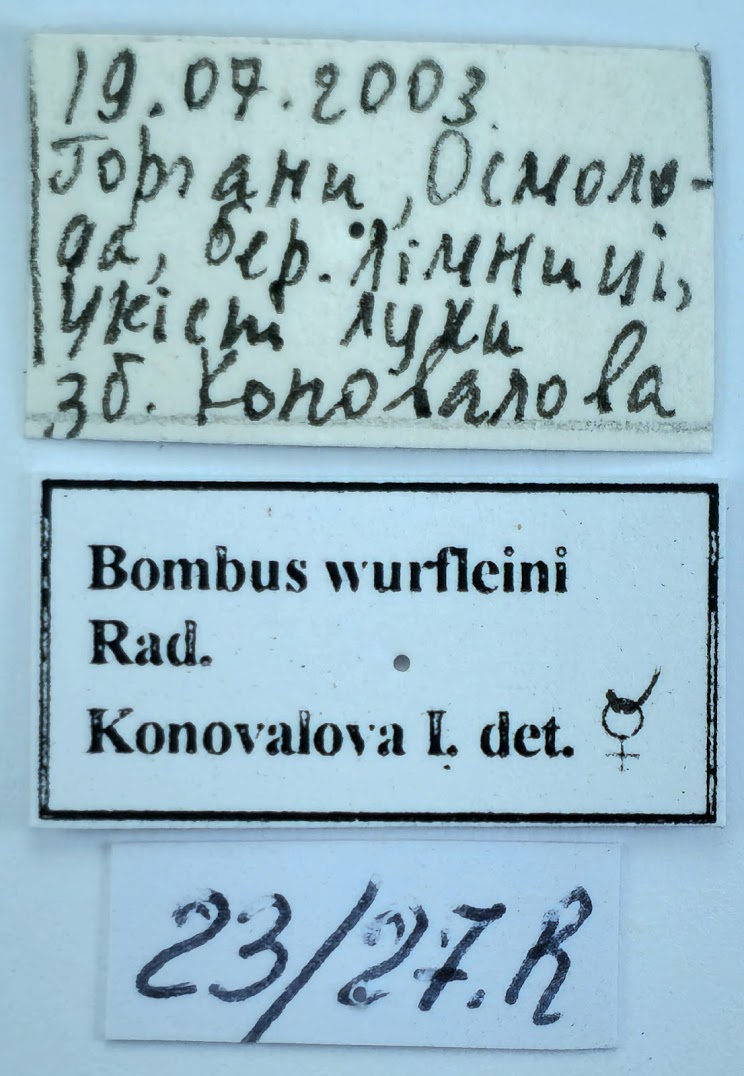 19.07.2003.
Горгани, Осмоло-
да, бер. Лімниці,
Укіст луки
зб. Коновалова
Bombus wurfleini
Rad.
Konovalova I. det. ☿
23/27.R